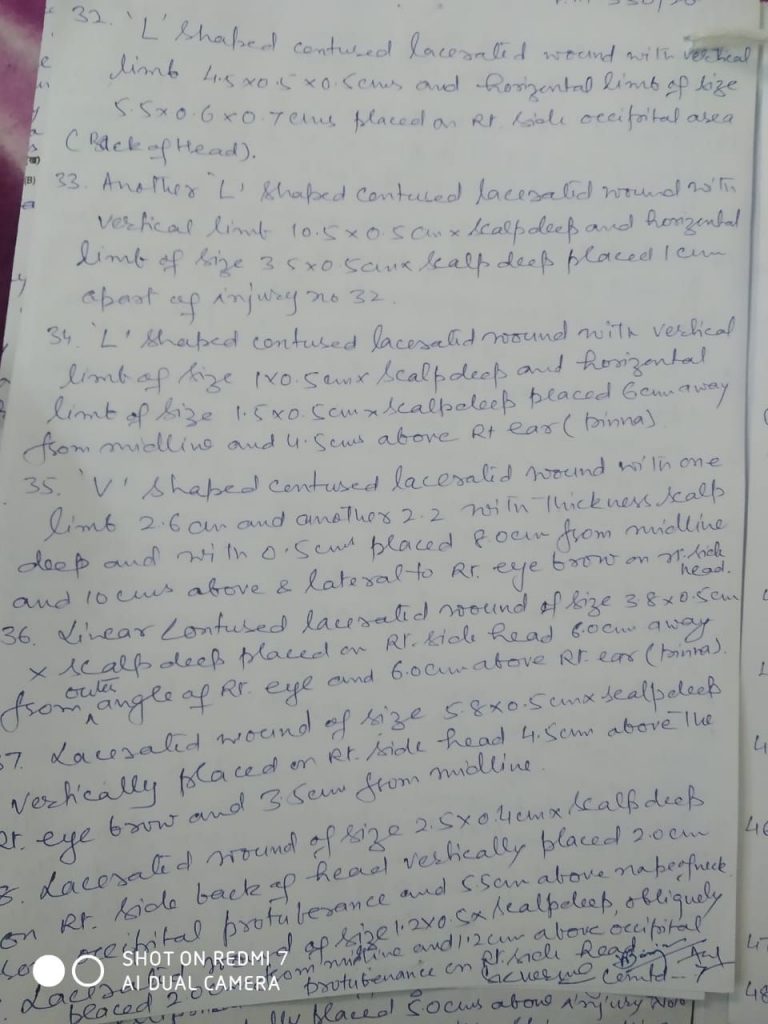 32. 'L' Shaped contused lacerated wound with vertical
limb 4.5 x 0.5 x 0.5 cms and horizental limb of size
5.5 x 0.6 x 0.7 cms placed on Rt. side occipital area
(Back of Head).
33. Another 'L' shaped contused lacerated wound with
vertical limb 10.5 x 0.5 cm x scalp deep and horizental
limb of size 3.5 x 0.5 cm x scalp deep placed 1 cm
apart of injury no 32.
34. 'L' shaped contused lacerated wound with vertical
limb of size 1 x 0.5 cm x scalp deep and horizental
limb of size 1.5 x 0.5 cm x scalp deep placed 6 cm away
from midline and 4.5 cms above Rt ear (pinna)
35. 'V' shaped contused lacerated wound with one
limb 2.6 cm and another 2.2 with thickness scalp
deep and with 0.5 cms placed 8.0 cm from midline
and 10 cms above & lateral to Rt. eye brow on rt. side
head.
36. Linear Contused lacerated wound of size 3.8 x 0.5 cm
x scalp deep placed on Rt. side head 6.0 cm away
from outer angle of Rt. eye and 6.0 cm above Rt. ear (pinna).
37. Lacerated wound of size 5.8 x 0.5 cm x scalp deep
vertically placed on Rt. side head 4.5 cm above The
Rt. eye brow and 3.5 cm from midline.
Lacerated wound of size 2.5 x 0.4 cm x scalp deep
on Rt. side back of head vertically placed 2.0 cm
occipital protuberance and 5.5 cm above nape of neck
Lacerated wound of size 1.2 x 0.5 x scalp deep, obliquely
placed 2.0 cm from midline and 1.2 cm above occipital
protuberance on Rt. side head
Contd-- 7
placed 5.0 cms above injury no
SHOT ON REDMI 7
AI DUAL CAMERA